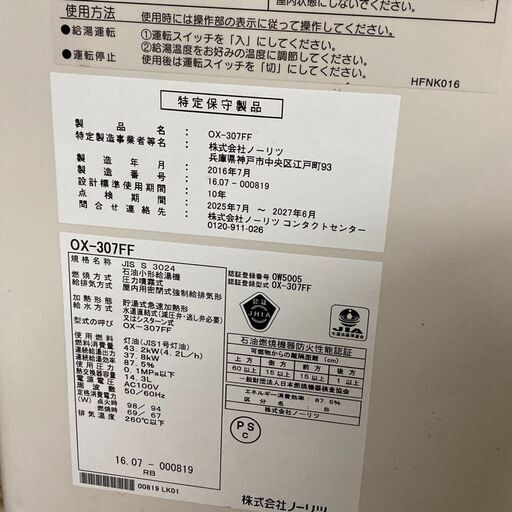 屋内状態にしないでください。
使用方法
使用時には操作部の表示に従って操作してください。
●給湯運転 ①運転スイッチを「入」にしてください。
②給湯温度をお好みの温度に調節してください。
●運転停止 使用後は運転スイッチを「切」にしてください。
HFNK016
特定保守製品
製品名 : OX-307FF
特定製造事業者等名 : 株式会社ノーリツ
兵庫県神戸市中央区江戸町93
製造年月 : 2016年7月
製造番号 : 16.07-000819
設計標準使用期間 : 10年
点検期間 : 2025年7月 ～ 2027年6月
問合せ連絡先 : 株式会社ノーリツ コンタクトセンター
0120-911-026
OX-307FF
規格名称 JIS S 3024
石油小形給湯機
燃焼方式 圧力噴霧式
給排気方式 屋内用密閉式強制給排気形
加熱形態 貯湯式急速加熱形
給水方式 水道直結式(減圧弁・逃し弁必要)
又はシスターン式
型式の呼び OX-307FF
使用燃料 灯油(JIS1号灯油)
燃料消費量 43.2kW(4.2L/h)
連続給湯出力 37.8kW
連続給湯効率 87.5%
使用圧力 0.1MPa以下
熱交換器容量 14.3L
電源電圧 AC100V
周波数 50/60Hz
定格消費電力
(W) 点火時 98/94
燃焼時 69/67
排気温度 260℃以下
16.07-000819
RB
00819 LK01
認証登録番号 OW5005
認証登録型式 OX-307FF
認証
JHIA
JIA
石油燃焼機器防火性能認証
可燃物からの離隔距離 (cm)
上方 側方 前方 後方
60以上 15以上 15以上 1以上
一般財団法人日本燃焼機器検査協会
エネルギー消費効率: 87.5%
区分名: B
株式会社ノーリツ
PS
C
株式会社ノーリツ